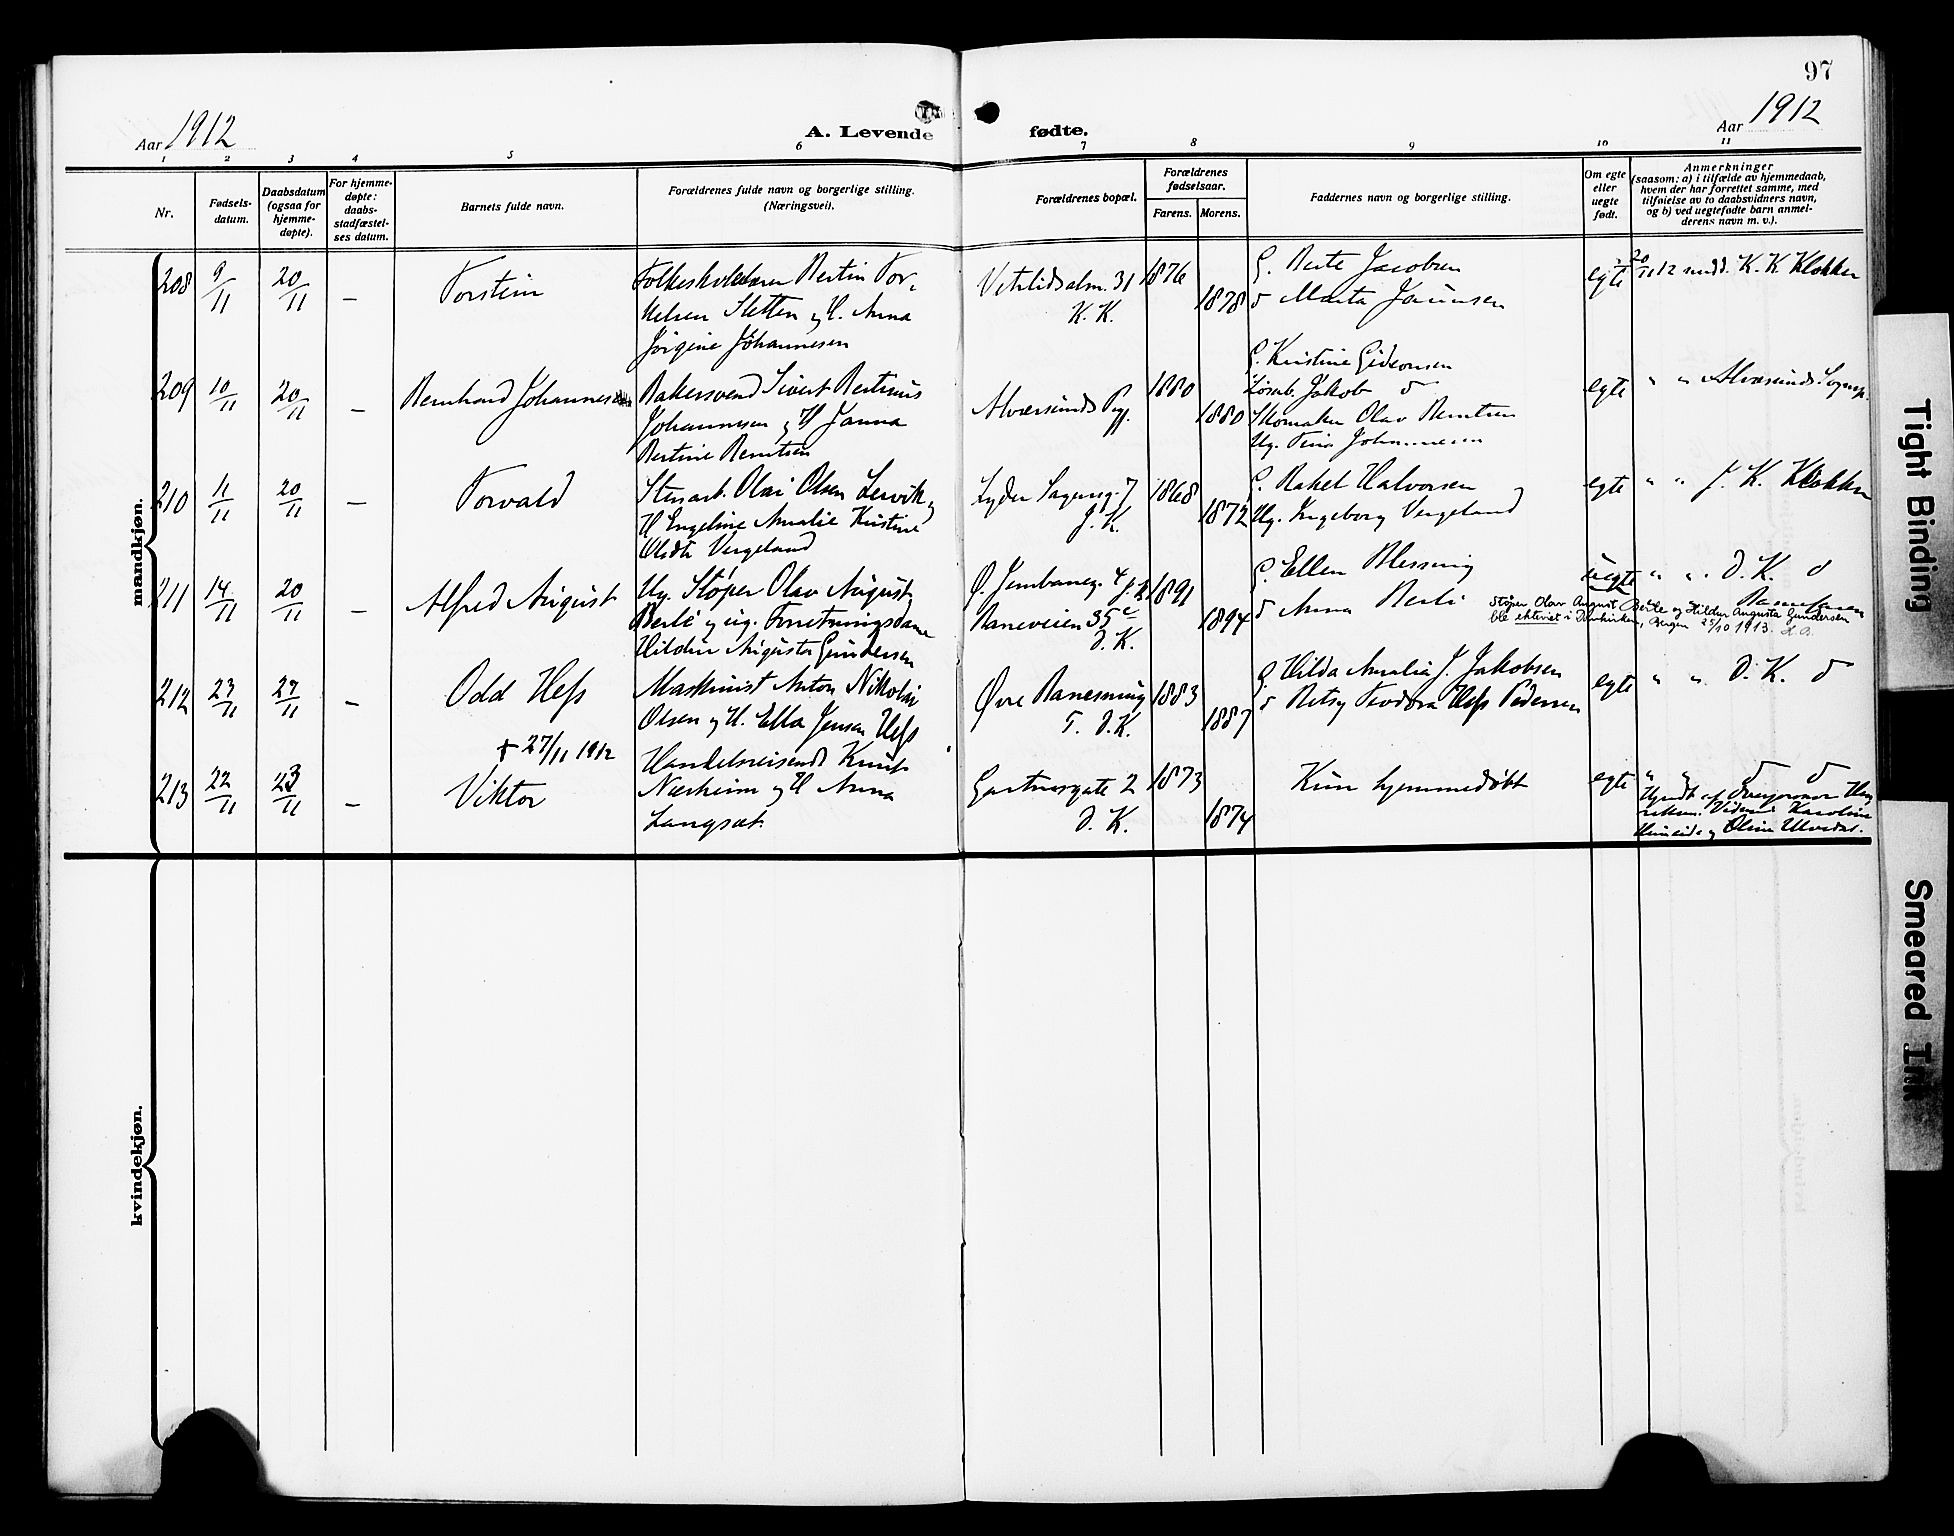 97
Aar 1912
A. Levende
fødte.
Aar 1912
1 2 3 4 5 6 7 8 9 10 11
Nr.
Fødsels-
datum.
Daabsdatum
(ogsaa for
hjemme-
døpte).
For hjemme-
døpte:
daabs-
stadfæstel-
ses datum.
Barnets fulde navn.
Forældrenes fulde navn og borgerlige stilling.
(Næringsvei).
Forældrenes bopæl.
Forældrenes
fødselsaar.
Farens. Morens.
Faddernes navn og borgerlige stilling.
Om egte
eller
uegte
født.
Anmerkninger
(saasom: a) i tilfælde av hjemmedaab,
hvem der har forrettet samme, med
tilføielse av to daabsvidners navn,
og b) ved uegtefødte barn anmel-
derens navn m. v.).
mandkjøn.
208 9/11 20/11 — Torstein
Folkeskolelærer Bertin Tor-
kelsen Sletten og H. Anna
Jørgine Johannesen
Vetrlidsalm. 31
K. K.
1876
1878
G. Berte Jacobsen
egte
20/11 12 medd. K. K Klokker
209 10/11 20/11 — Bernhard Johannesen
Bakersvend Sivert Bertinus
Johannesen og H Janna
Bertine Berntsen
Alværsunds Pgj.
1880
1880
G. Kristine Gideonsen
Løsarb. Jakob do
Skomaker Olav Berntsen
Ug. Tina Johannesen
egte
" " Alværsunds Sognep.
210 11/11 20/11 — Torvald
Stenarb. Olai Olsen Lervik og
H Engeline Amalie Kristine
Vergeland
Lyder Sagensg. 7
J. K.
1868
1872
G. Rakel Halvorsen
Ug. Ingeborg Vergeland
egte
" " J. K. Klokker
211 14/11 20/11 — Alfred August
Ug. Støper Olav August
Berle og ug. Forretningsdame
Hildur Augusta Gundersen
Ø. Jernbaneg. 4 J. K
Baneveien 35 c
D. K.
1891
1894
G. Ellen Blessing
do Anna Berle
uegte
" " D. K. do
Støper Olav August Berle og Hildur Augusta Gundersen
ble ekteviet i Domkirken, Bergen 25/10 1913.
212 23/11 27/11 — Odd Hess
+ 27/11 1912
Maskinist Anton Nikolai
Olsen og H. Ella Jensen Hess
Øvre Banesmug
T. D. K.
1883
1887
G Hilda Amalia J. Jakobsen
do Betsy Teodora Hess Pedersen
egte
" " D. K. do
213 22/11 23/11 — Viktor
Handelsreisende Knut
Nærheim og H Anna
Langsæt.
Gartnergate 2
D. K.
1873
1874
Kun hjemmedøbt
egte
" " do do
Hjmdt af Overjormor Hen
riksen. Vidner: Karoline
og Oline Ulvedal.
kvindekjøn.
Tight Binding
Smeared Ink